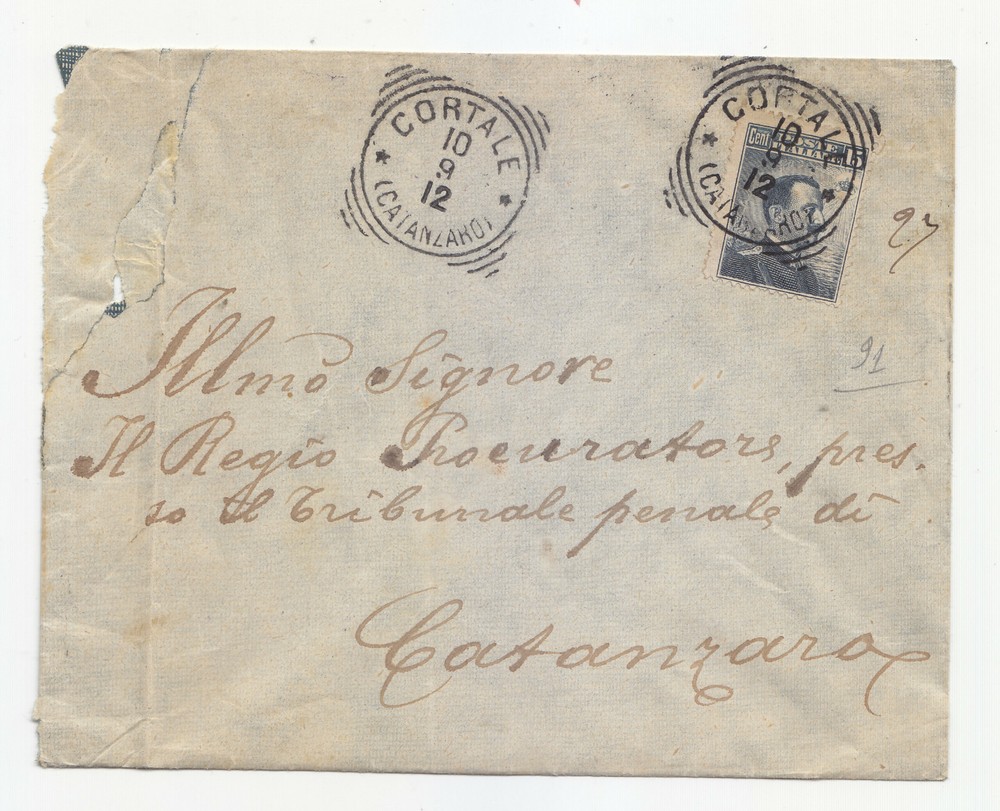 CORTALE
10
9
12
(CATANZARO)
CORTALE
10
9
12
(CATANZARO)
Cent POSTE 15
ITALIANE
27
91
Illmo Signore
Il Regio Procuratore, pres-
so il Tribunale penale di
Catanzaro